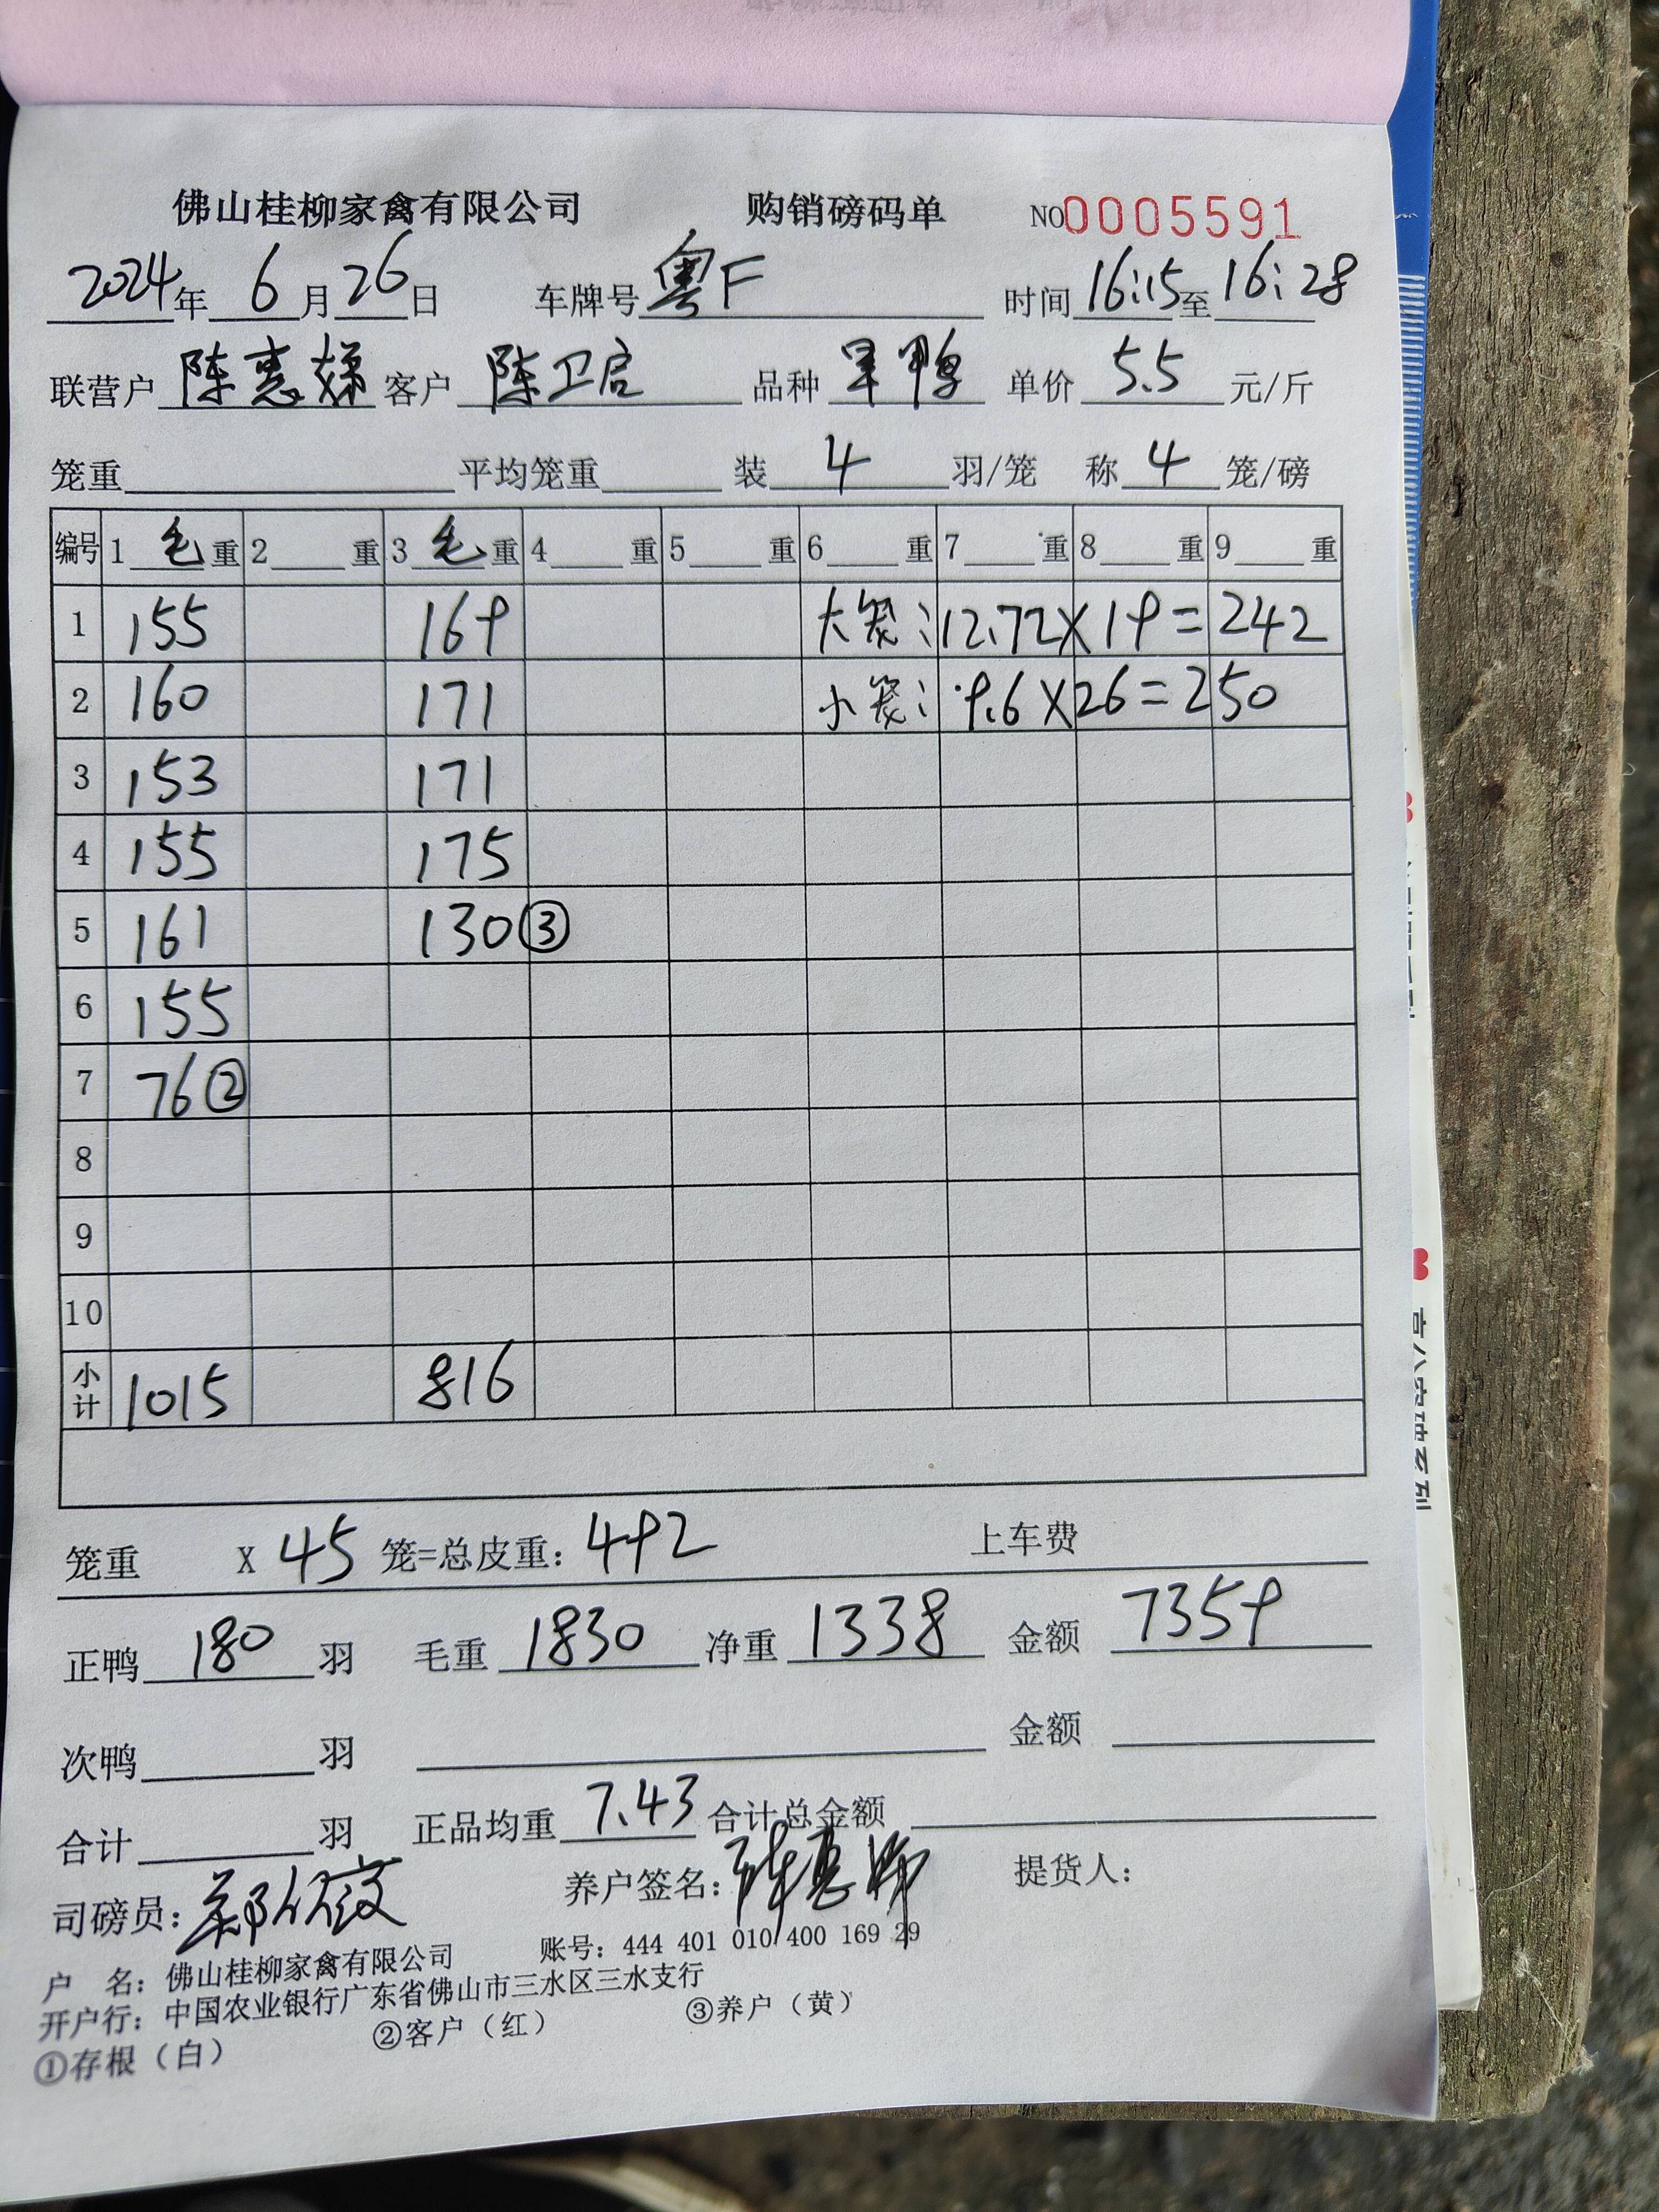 佛山桂柳家禽有限公司 购销磅码单 NO0005591
2024年6月26日 车牌号粤F 时间16:15至16:28
联营户 陈惠娣 客户 陈卫启 品种 旱鸭 单价 5.5 元/斤
笼重 平均笼重 装 4 羽/笼 称 4 笼/磅
编号 1 毛重 2 重 3 毛重 4 重 5 重 6 重 7 重 8 重 9 重
1 155 169 大笼:12.72X19=242
2 160 171 小笼:9.6X26=250
3 153 171
4 155 175
5 161 130③
6 155
7 76②
8
9
10
小计 1015 816
笼重 X 45 笼=总皮重:492 上车费
正鸭 180 羽 毛重 1830 净重 1338 金额 7359
次鸭 羽 金额
合计 羽 正品均重 7.43 合计总金额
司磅员: 养户签名:陈惠娣 提货人:
户 名:佛山桂柳家禽有限公司 账号:444 401 010 400 169 29
开户行:中国农业银行广东省佛山市三水区三水支行
①存根(白) ②客户(红) ③养户(黄)